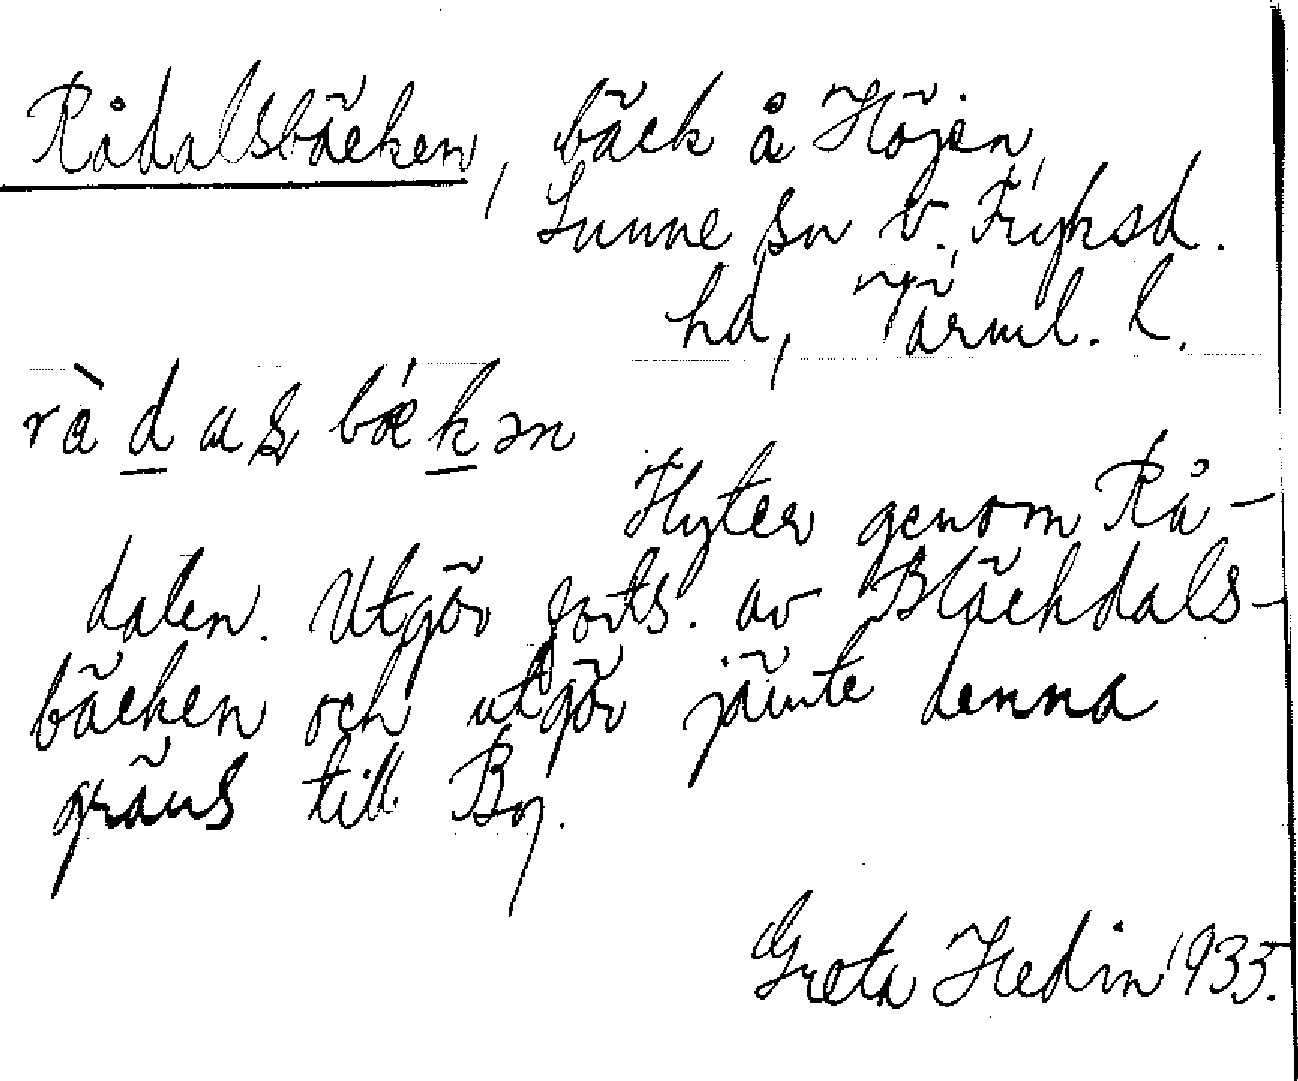 Rådalsbäcken, bäck å Höjen,
Sunne sn V. Fryksd.
hd, Värml. l.
rå̀dasbǽkən
Flyter genom Rå-
dalen. Utgör forts. av Bläckdals-
bäcken och utgör jämte denna
gräns till By.
Greta Hedin 1933.